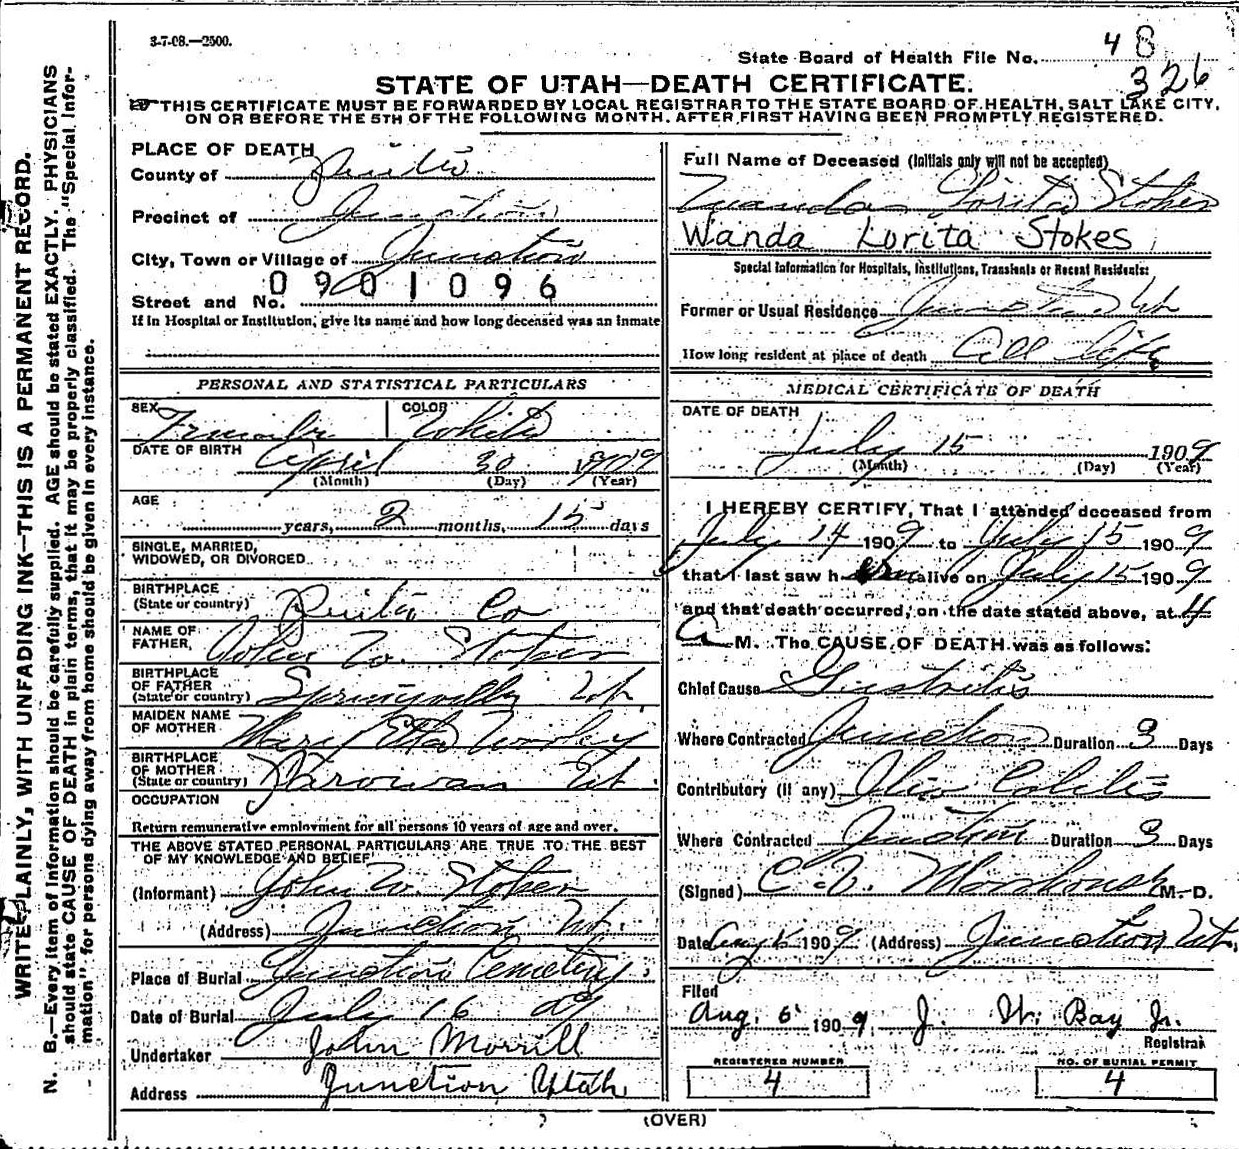 3-7-08.—2500.
State Board of Health File No. 48
326
STATE OF UTAH—DEATH CERTIFICATE.
THIS CERTIFICATE MUST BE FORWARDED BY LOCAL REGISTRAR TO THE STATE BOARD OF HEALTH, SALT LAKE CITY,
ON OR BEFORE THE 5TH OF THE FOLLOWING MONTH. AFTER FIRST HAVING BEEN PROMPTLY REGISTERED.
WRITE PLAINLY, WITH UNFADING INK—THIS IS A PERMANENT RECORD.
N. B.—Every item of information should be carefully supplied. AGE should be stated EXACTLY. PHYSICIANS
should state CAUSE OF DEATH in plain terms, that it may be properly classified. The "Special Infor-
mation" for persons dying away from home should be given in every instance.
PLACE OF DEATH
County of Piute
Precinct of Junction
City, Town or Village of Junction
0901096
Street and No.
If in Hospital or Institution, give its name and how long deceased was an inmate
PERSONAL AND STATISTICAL PARTICULARS
SEX Female COLOR White
DATE OF BIRTH April 30 1909
(Month) (Day) (Year)
AGE
years, 2 months, 15 days
SINGLE, MARRIED,
WIDOWED, OR DIVORCED
BIRTHPLACE
(State or country) Piute Co
NAME OF
FATHER, John W. Stokes
BIRTHPLACE
OF FATHER
(State or country) Springville Ut.
MAIDEN NAME
OF MOTHER Mary Etta
BIRTHPLACE
OF MOTHER
(State or country) Parowan Ut.
OCCUPATION
Return remunerative employment for all persons 10 years of age and over.
THE ABOVE STATED PERSONAL PARTICULARS ARE TRUE TO THE BEST
OF MY KNOWLEDGE AND BELIEF
(Informant) John W. Stokes
(Address) Junction Ut.
Place of Burial Junction Cemetery.
Date of Burial July 16 09
Undertaker John Morrill
Address Junction Utah
Full Name of Deceased (Initials only will not be accepted)
Wanda Lorita Stokes
Wanda Lorita Stokes
Special Information for Hospitals, Institutions, Transients or Recent Residents:
Former or Usual Residence Junction Ut
How long resident at place of death All life
MEDICAL CERTIFICATE OF DEATH
DATE OF DEATH
July 15 1909
(Month) (Day) (Year)
I HEREBY CERTIFY, That I attended deceased from
July 14 1909 to July 15 1909
that I last saw h er alive on July 15 1909
and that death occurred, on the date stated above, at 4
A M. The CAUSE OF DEATH was as follows:
Chief Cause Gastritis
Where Contracted Junction Duration 3 Days
Contributory (if any) Ilio Colitis
Where Contracted Junction Duration 3 Days
(Signed) M. D.
Date Aug 1909 (Address) Junction Ut.
Filed
Aug. 1909. J. W. Bay Jr.
Registrar
REGISTERED NUMBER
4
NO. OF BURIAL PERMIT
4
(OVER)